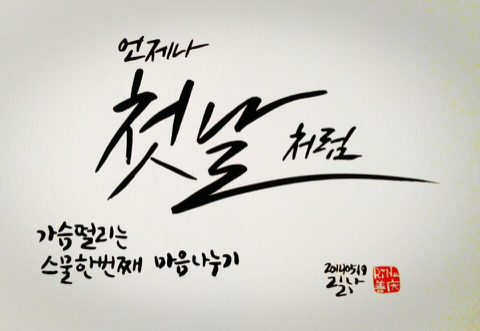 언제나
첫날
처럼
가슴떨리는
스물한번째 마음나누기
20140519
리나
RiNa